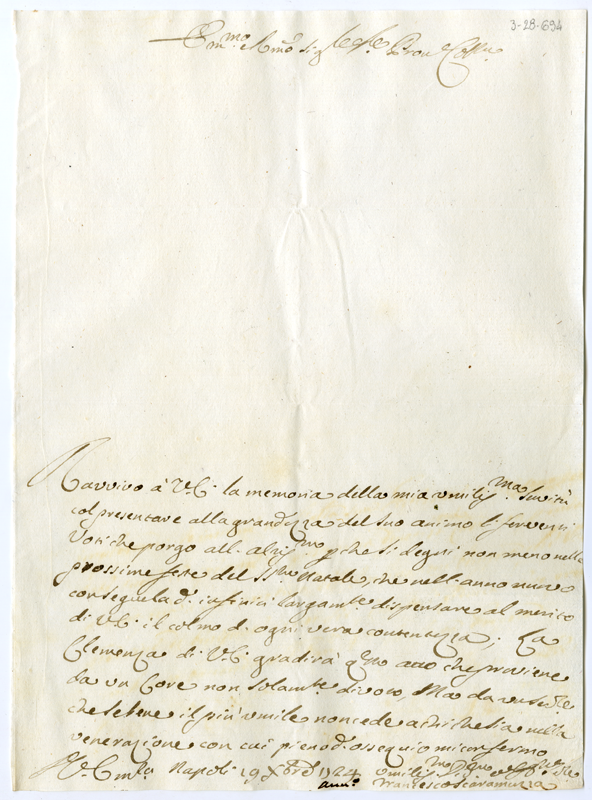 3-28-694
Em.mo e Rmo Sig.re
Ravvivo à V.E. la memoria della mia umiliss.ma Servitù
col presentare alla grandezza del suo animo li ferventi
Voti che porgo all' altiss.mo p che si degni non meno nelle
prossime feste del SS.mo Natale, che nell' anno nuovo
con sequela d' infiniti largam.te dispensare al merito
di V.E. il colmo d' ogni vera contentezza; La
Clemenza di V.E. gradirà q.sto atto che proviene
da un Core non solam.te divoto, Ma da un
che se bene il più umile non cede a chi che sia nella
venerazione con cui pieno d' ossequio mi confermo
Napoli 19 Xbre 1724
Francesco Scaramuzza